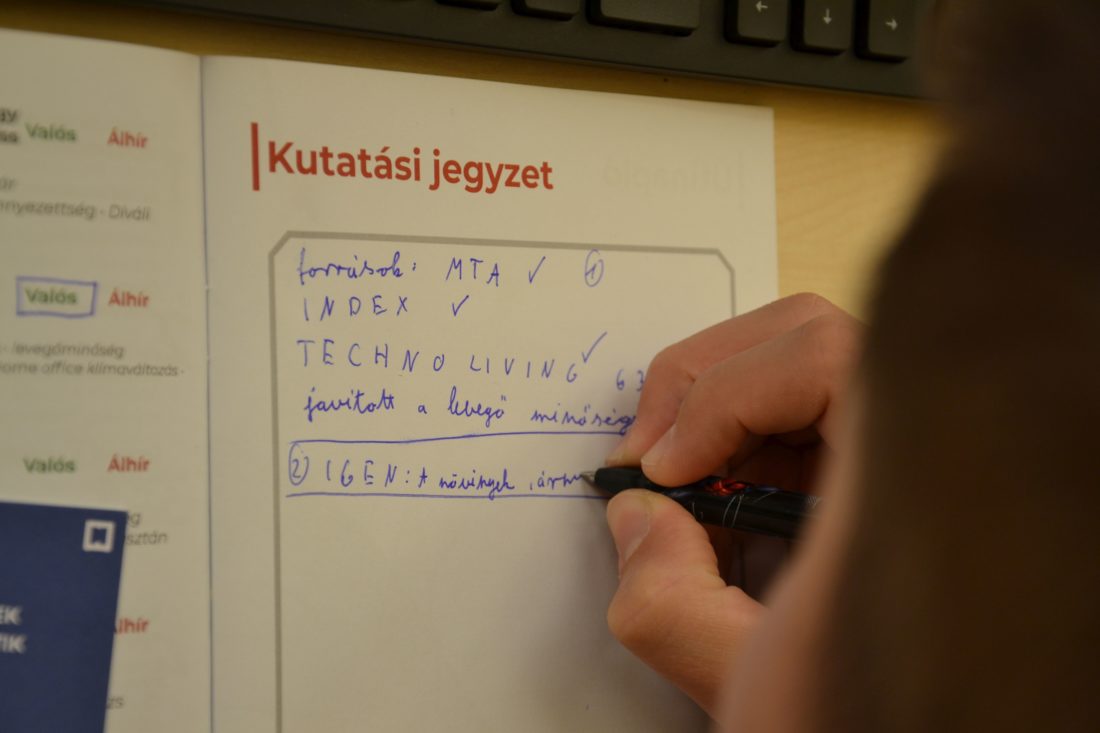 Valós Álhír
nyezettség - Diváll
Valós Álhír
- levegőminőség
home office klímaváltozás -
Valós Álhír
sztán
Álhír
Kutatási jegyzet
források: MTA ✓ ①
INDEX ✓
TECHNO LIVING ✓ 63
javított a levegő minőség
② IGEN: A növények